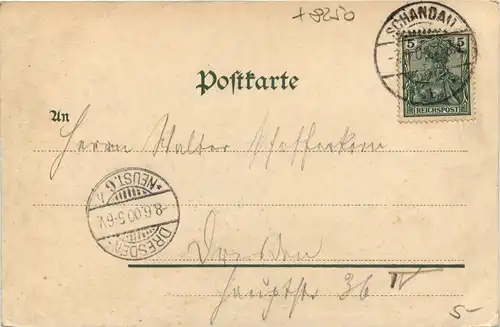 + 9250
SCHANDAU
5 5
REICHSPOST
Postkarte
An
Herrn Walter
* NEUST. 6
8.6.00.5-6V.
DRESDEN
Dresden
Hauptstr 36 IV
5-